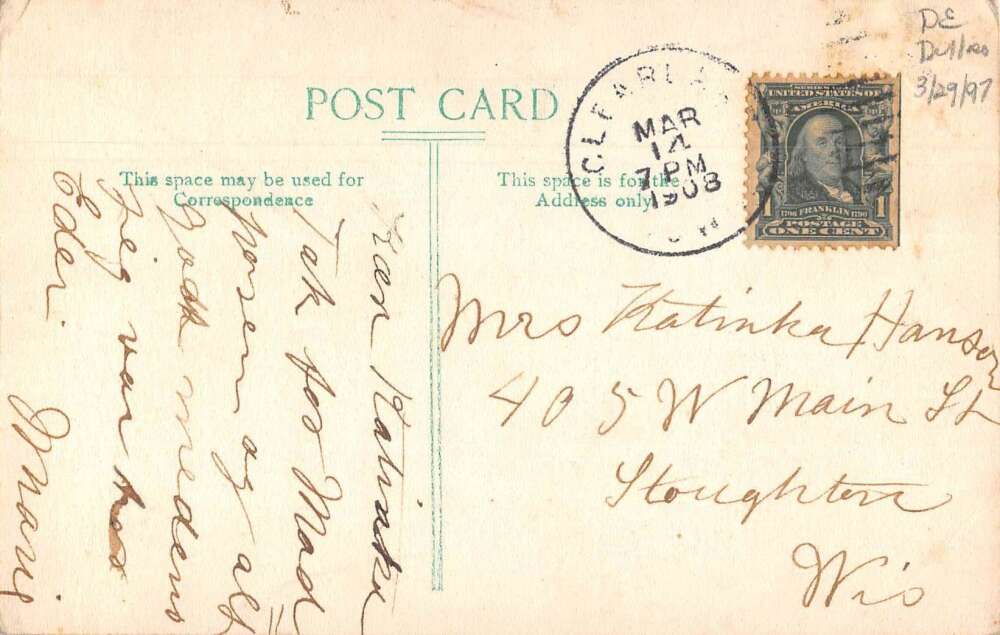 DE
3/29/97
POST CARD
This space may be used for
Correspondence
This space is for the
Address only
CLEARLA
MAR
14
7 PM
1908
SERIES 1902
UNITED STATES OF
AMERICA
1 1
1706 FRANKLIN 1790
POSTAGE
ONE CENT
Mrs Katinka Hanson
405 W Main St
Stoughton
Wis
Kære Katinka
Tak for Mad
posen og alt
Godt medens
Jeg var hos
Eder.
Marie